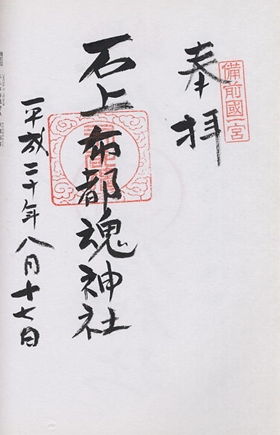 備前國一宮
奉拝
石上布都魂神社
平成二十年八月十七日